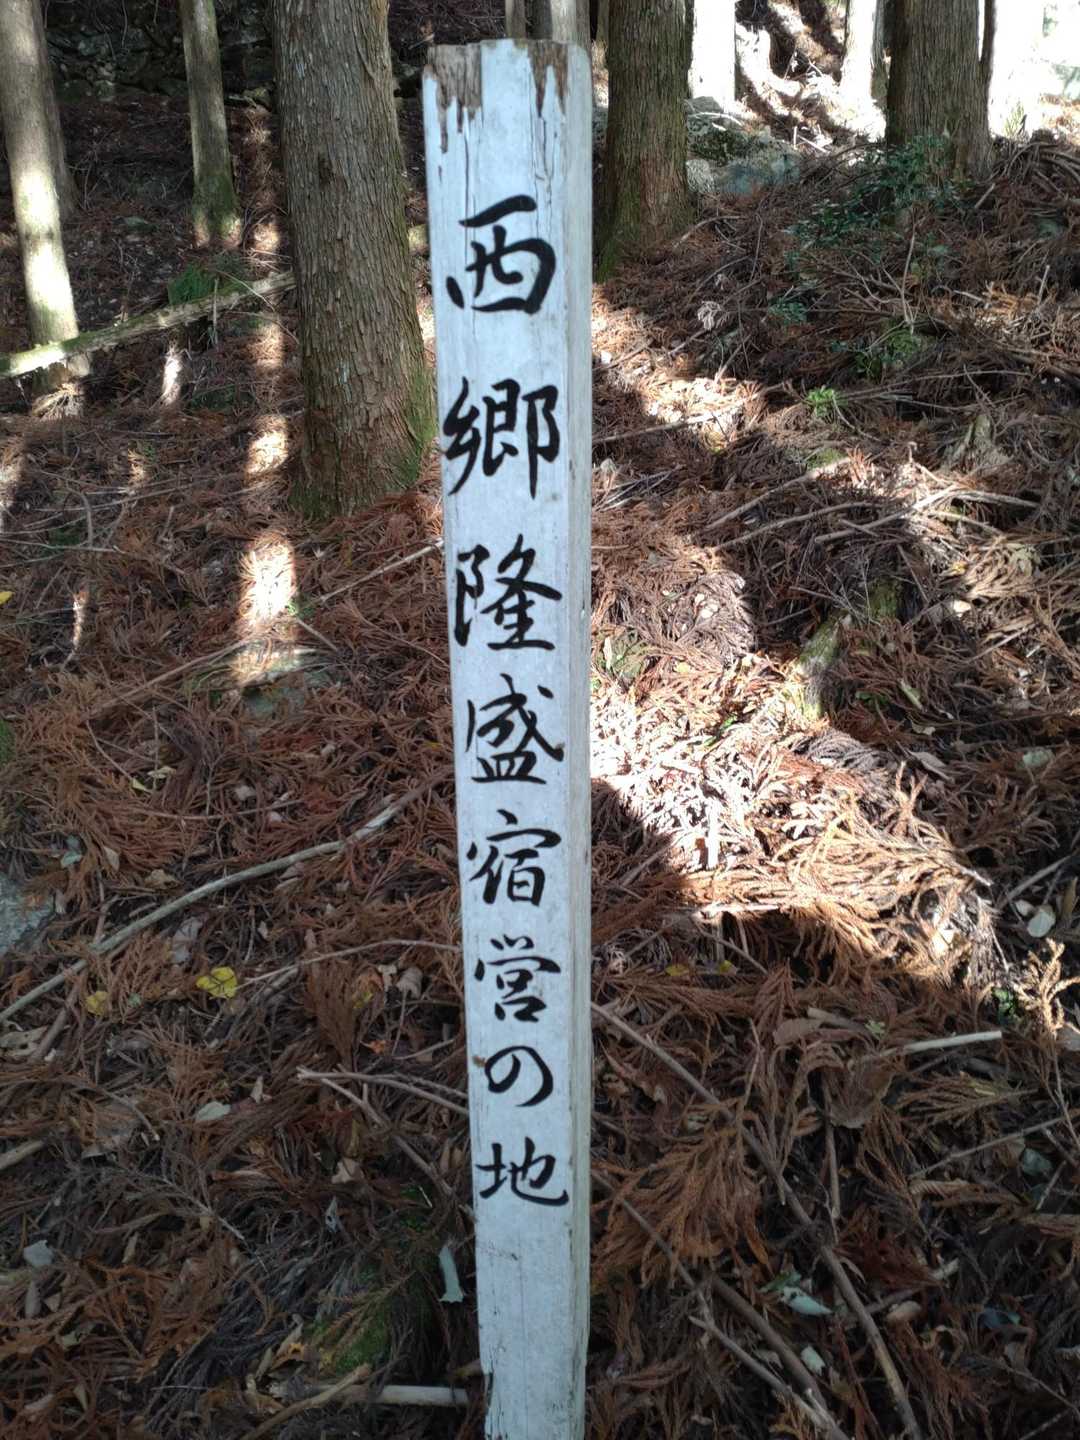 西郷隆盛宿営の地